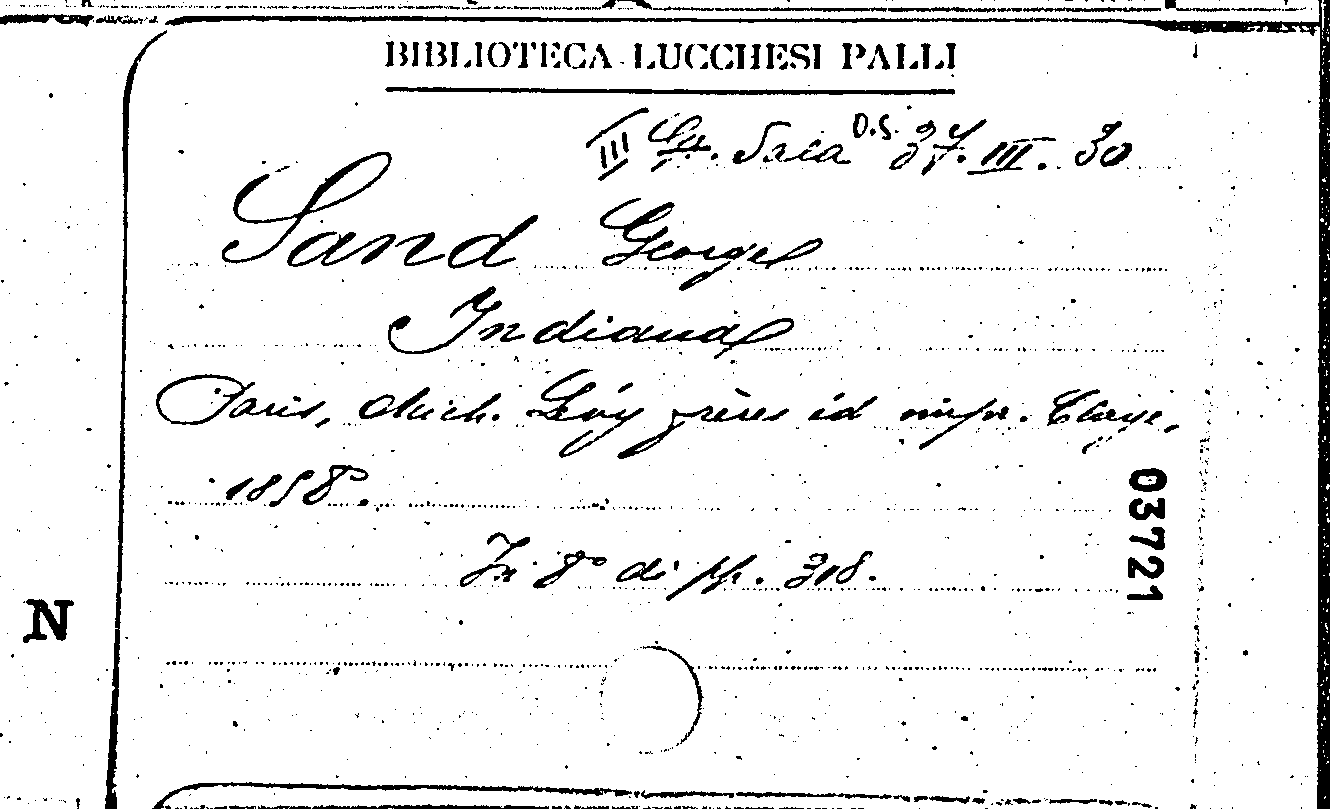 BIBLIOTECA LUCCHESI PALLI
III Sala D.S. 27. III. 30
Sand George
Indiana
Paris, Mich. Lévy frères éd impr. Claye,
1858.
In 8° di pp. 318.
03721
N